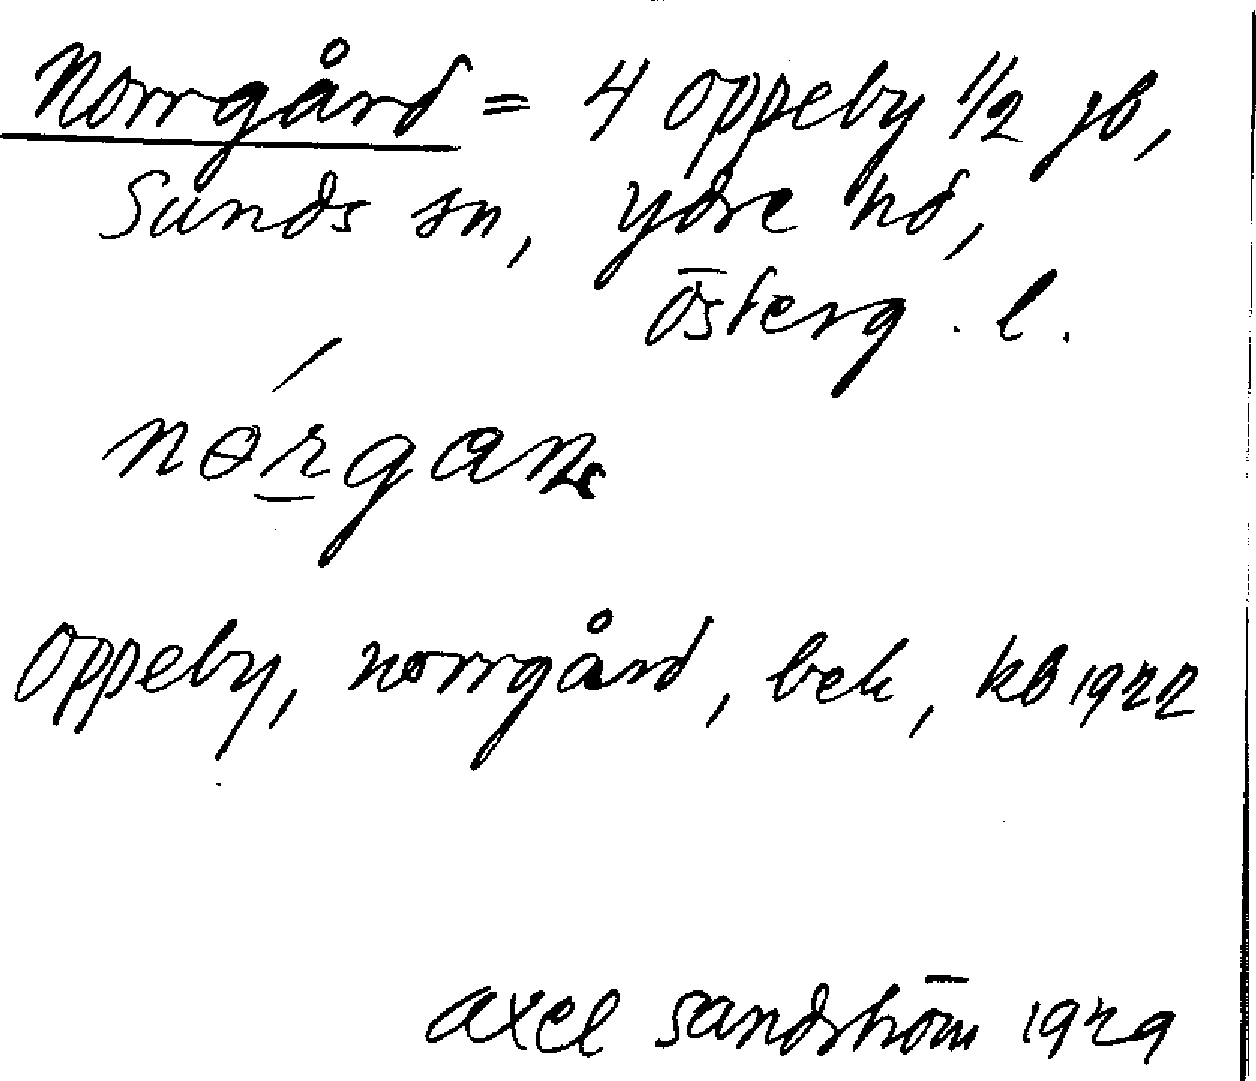 Norrgård = 4 Oppeby 1/2 jb,
Sunds sn, Ydre hd,
Österg. l.
Oppeby, norrgård, bek, kb 1922
Axel Sandström 1929